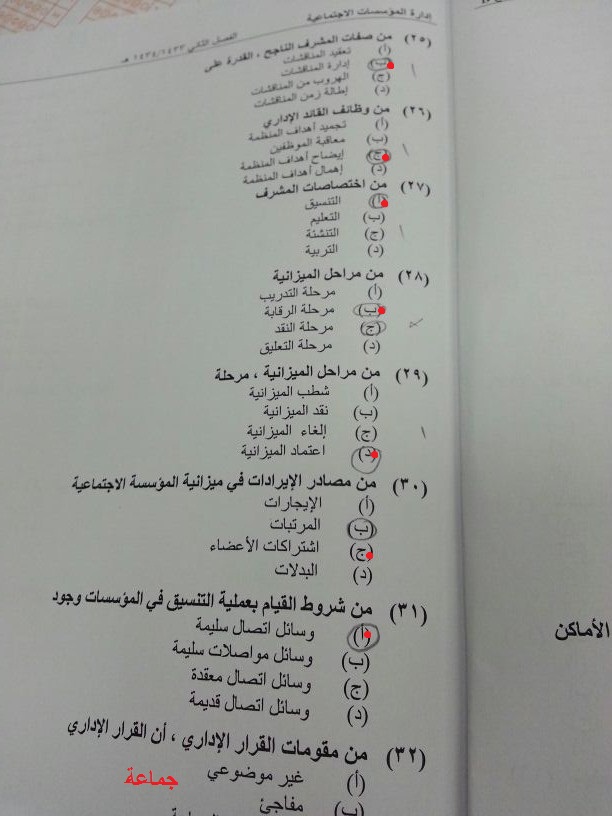 إدارة المؤسسات الاجتماعية
الفصل الثاني ١٤٣٤/١٤٣٣ هـ
(٢٥) من صفات المشرف الناجح ، القدرة على
(أ) تعقيد المناقشات
(ب) إدارة المناقشات
(ج) الهروب من المناقشات
(د) إطالة زمن المناقشات
(٢٦) من وظائف القائد الإداري
(أ) تجميد أهداف المنظمة
(ب) معاقبة الموظفين
(ج) إيضاح أهداف المنظمة
(د) إهمال أهداف المنظمة
(٢٧) من اختصاصات المشرف
(أ) التنسيق
(ب) التعليم
(ج) التنشئة
(د) التربية
(٢٨) من مراحل الميزانية
(أ) مرحلة التدريب
(ب) مرحلة الرقابة
(ج) مرحلة النقد
(د) مرحلة التعليق
(٢٩) من مراحل الميزانية ، مرحلة
(أ) شطب الميزانية
(ب) نقد الميزانية
(ج) إلغاء الميزانية
(د) اعتماد الميزانية
(٣٠) من مصادر الإيرادات في ميزانية المؤسسة الاجتماعية
(أ) الإيجارات
(ب) المرتبات
(ج) اشتراكات الأعضاء
(د) البدلات
(٣١) من شروط القيام بعملية التنسيق في المؤسسات وجود
(أ) وسائل اتصال سليمة
(ب) وسائل مواصلات سليمة
(ج) وسائل اتصال معقدة
(د) وسائل اتصال قديمة
(٣٢) من مقومات القرار الإداري ، أن القرار الإداري
(أ) غير موضوعي
جماعة
(ب) مفاجئ
الأماكن